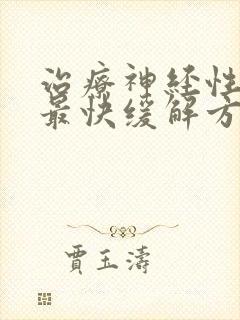 治療神经性
最快缓解方
賈玉濤